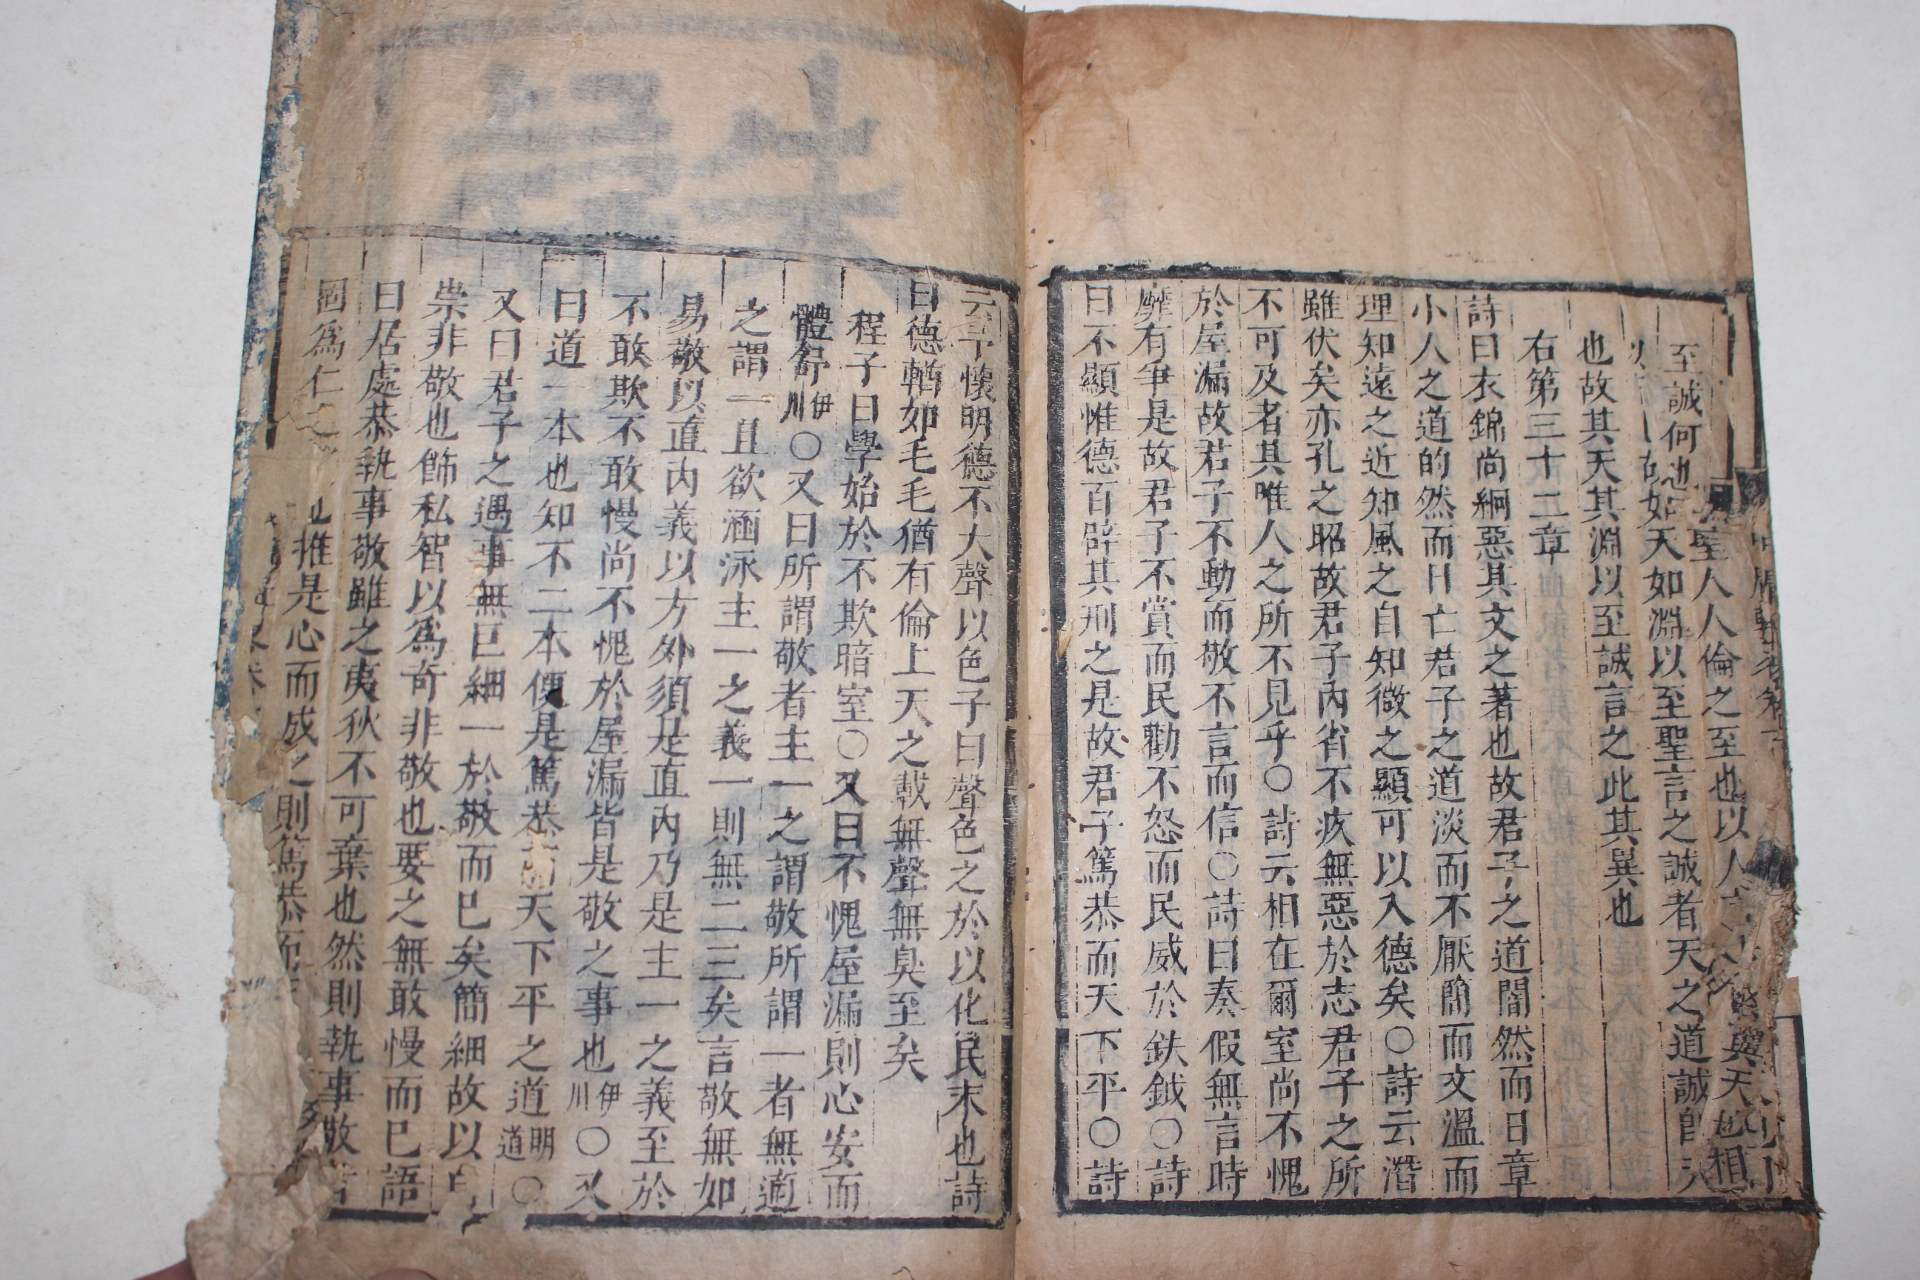 聖人人倫之至也以人
至誠何也如天如淵以至聖言之誠者天之道誠
也故其天其淵以至誠言之此其異也
右第三十二章
詩曰衣錦尚絅惡其文之著也故君子之道闇然而日章
小人之道的然而日亡君子之道淡而不厭簡而文溫而
理知遠之近知風之自知微之顯可以入德矣〇詩云潛
雖伏矣亦孔之昭故君子內省不疚無惡於志君子之所
不可及者其唯人之所不見乎〇詩云相在爾室尚不愧
於屋漏故君子不動而敬不言而信〇詩曰奏假無言時
靡有爭是故君子不賞而民勸不怒而民威於鈇鉞〇詩
曰不顯惟德百辟其刑之是故君子篤恭而天下平〇詩
云予懷明德不大聲以色子曰聲色之於以化民末也詩
曰德輶如毛毛猶有倫上天之載無聲無臭至矣
程子曰學始於不欺暗室〇又曰不愧屋漏則心安而
體舒伊川〇又曰所謂敬者主一之謂敬所謂一者無適
之謂一且欲涵泳主一之義一則無二三矣言敬無如
易敬以直內義以方外須是直內乃是主一之義至於
不敢欺不敢慢尚不愧於屋漏皆是敬之事也伊川〇又
曰道一本也知不二本便是篤恭而天下平之道明道〇
又曰君子之遇事無巨細一於敬而已矣簡細故以
崇非敬也飾私智以爲奇非敬也要之無敢慢而已語
曰居處恭執事敬雖之夷狄不可棄也然則執事敬者
固爲仁之 也推是心而成之則篤恭而天